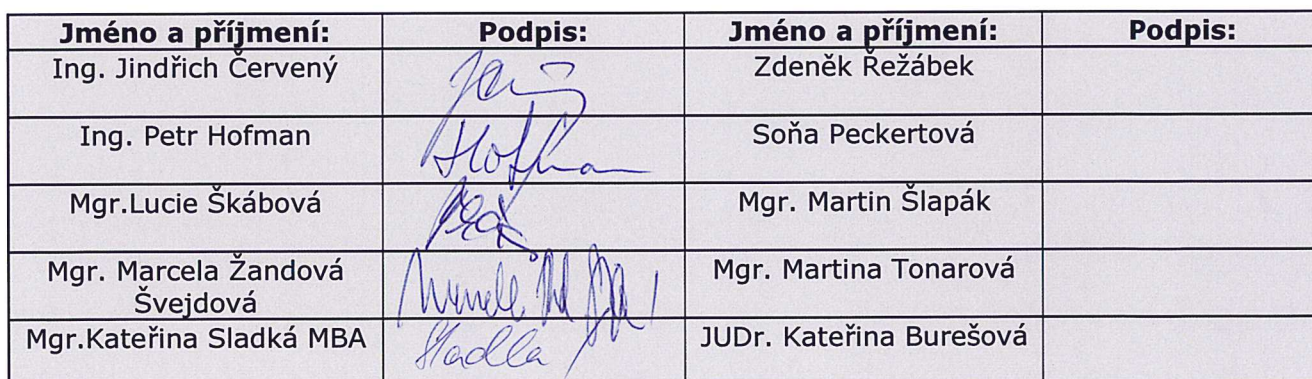 Jméno a příjmení: Podpis: Jméno a příjmení: Podpis:
Ing. Jindřich Červený Zdeněk Řežábek
Ing. Petr Hofman Hofman Soňa Peckertová
Mgr.Lucie Škábová Mgr. Martin Šlapák
Mgr. Marcela Žandová Mgr. Martina Tonarová
Švejdová
Mgr.Kateřina Sladká MBA Sladká JUDr. Kateřina Burešová